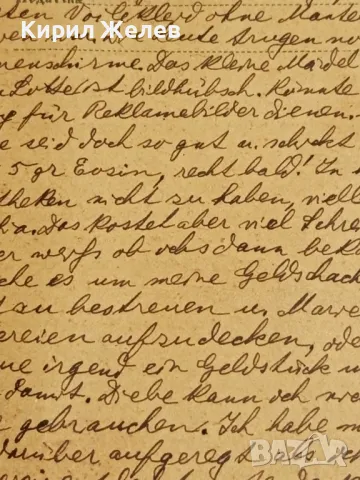 Кирил Желев
sten Voilekleid ohne Mante
ute trugen no
nenschirme. Das kleine Mädel
Lotte ist bildhübsch. Könnte
für Reklamebilder dienen.
e seid doch so gut u. schickt
5 gr Eosin, recht bald! In
theken nicht zu haben, viell
Das kostet aber viel Schre
er weiss ob ichs dann bek
che es um meine Geldschac
zu bestreuen u. Marie
ereien aufzudecken, ode
ne irgend ein Geldstück
damit. Diebe kann ich nic
gebrauchen. Ich habe m
darüber aufgeregt als ich
BAZAR